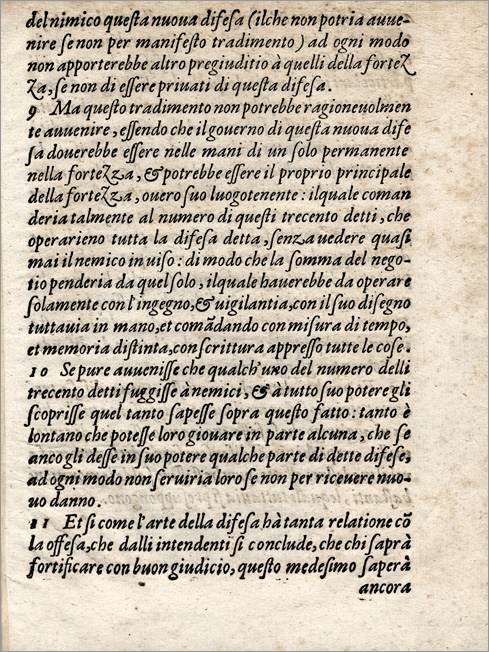 del nimico questa nuoua difesa (ilche non potria auue-
nire se non per manifesto tradimento) ad ogni modo
non apporterebbe altro pregiuditio à quelli della fortez
za, se non di essere priuati di questa difesa.
9 Ma questo tradimento non potrebbe ragioneuolmen
te auuenire, essendo che il gouerno di questa nuoua dife
sa douerebbe essere nelle mani di un solo permanente
nella fortezza, & potrebbe essere il proprio principale
della fortezza, ouero suo luogotenente: ilquale coman
deria talmente al numero di questi trecento detti, che
operarieno tutta la difesa detta, senza uedere quasi
mai il nemico in uiso: di modo che la somma del nego-
tio penderia da quel solo, ilquale hauerebbe da operare
solamente con l'ingegno, & uigilantia, con il suo disegno
tuttauia in mano, et comādando con misura di tempo,
et memoria distinta, con scrittura appresso tutte le cose.
10 Se pure auuenisse che qualch'uno del numero delli
trecento detti fuggisse à nemici, & à tutto suo potere gli
scoprisse quel tanto sapesse sopra questo fatto: tanto è
lontano che potesse loro giouare in parte alcuna, che se
anco gli desse in suo potere qualche parte di dette difese,
ad ogni modo non seruiria loro se non per riceuere nuo-
uo danno.
11 Et si come l'arte della difesa hà tanta relatione cō
la offesa, che dalli intendenti si conclude, che chi saprà
fortificare con buon giudicio, questo medesimo saperà
ancora